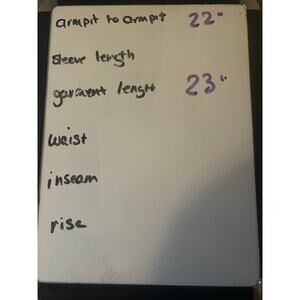 armpit to armpit 22"
sleeve length
garment length 23"
waist
inseam
rise